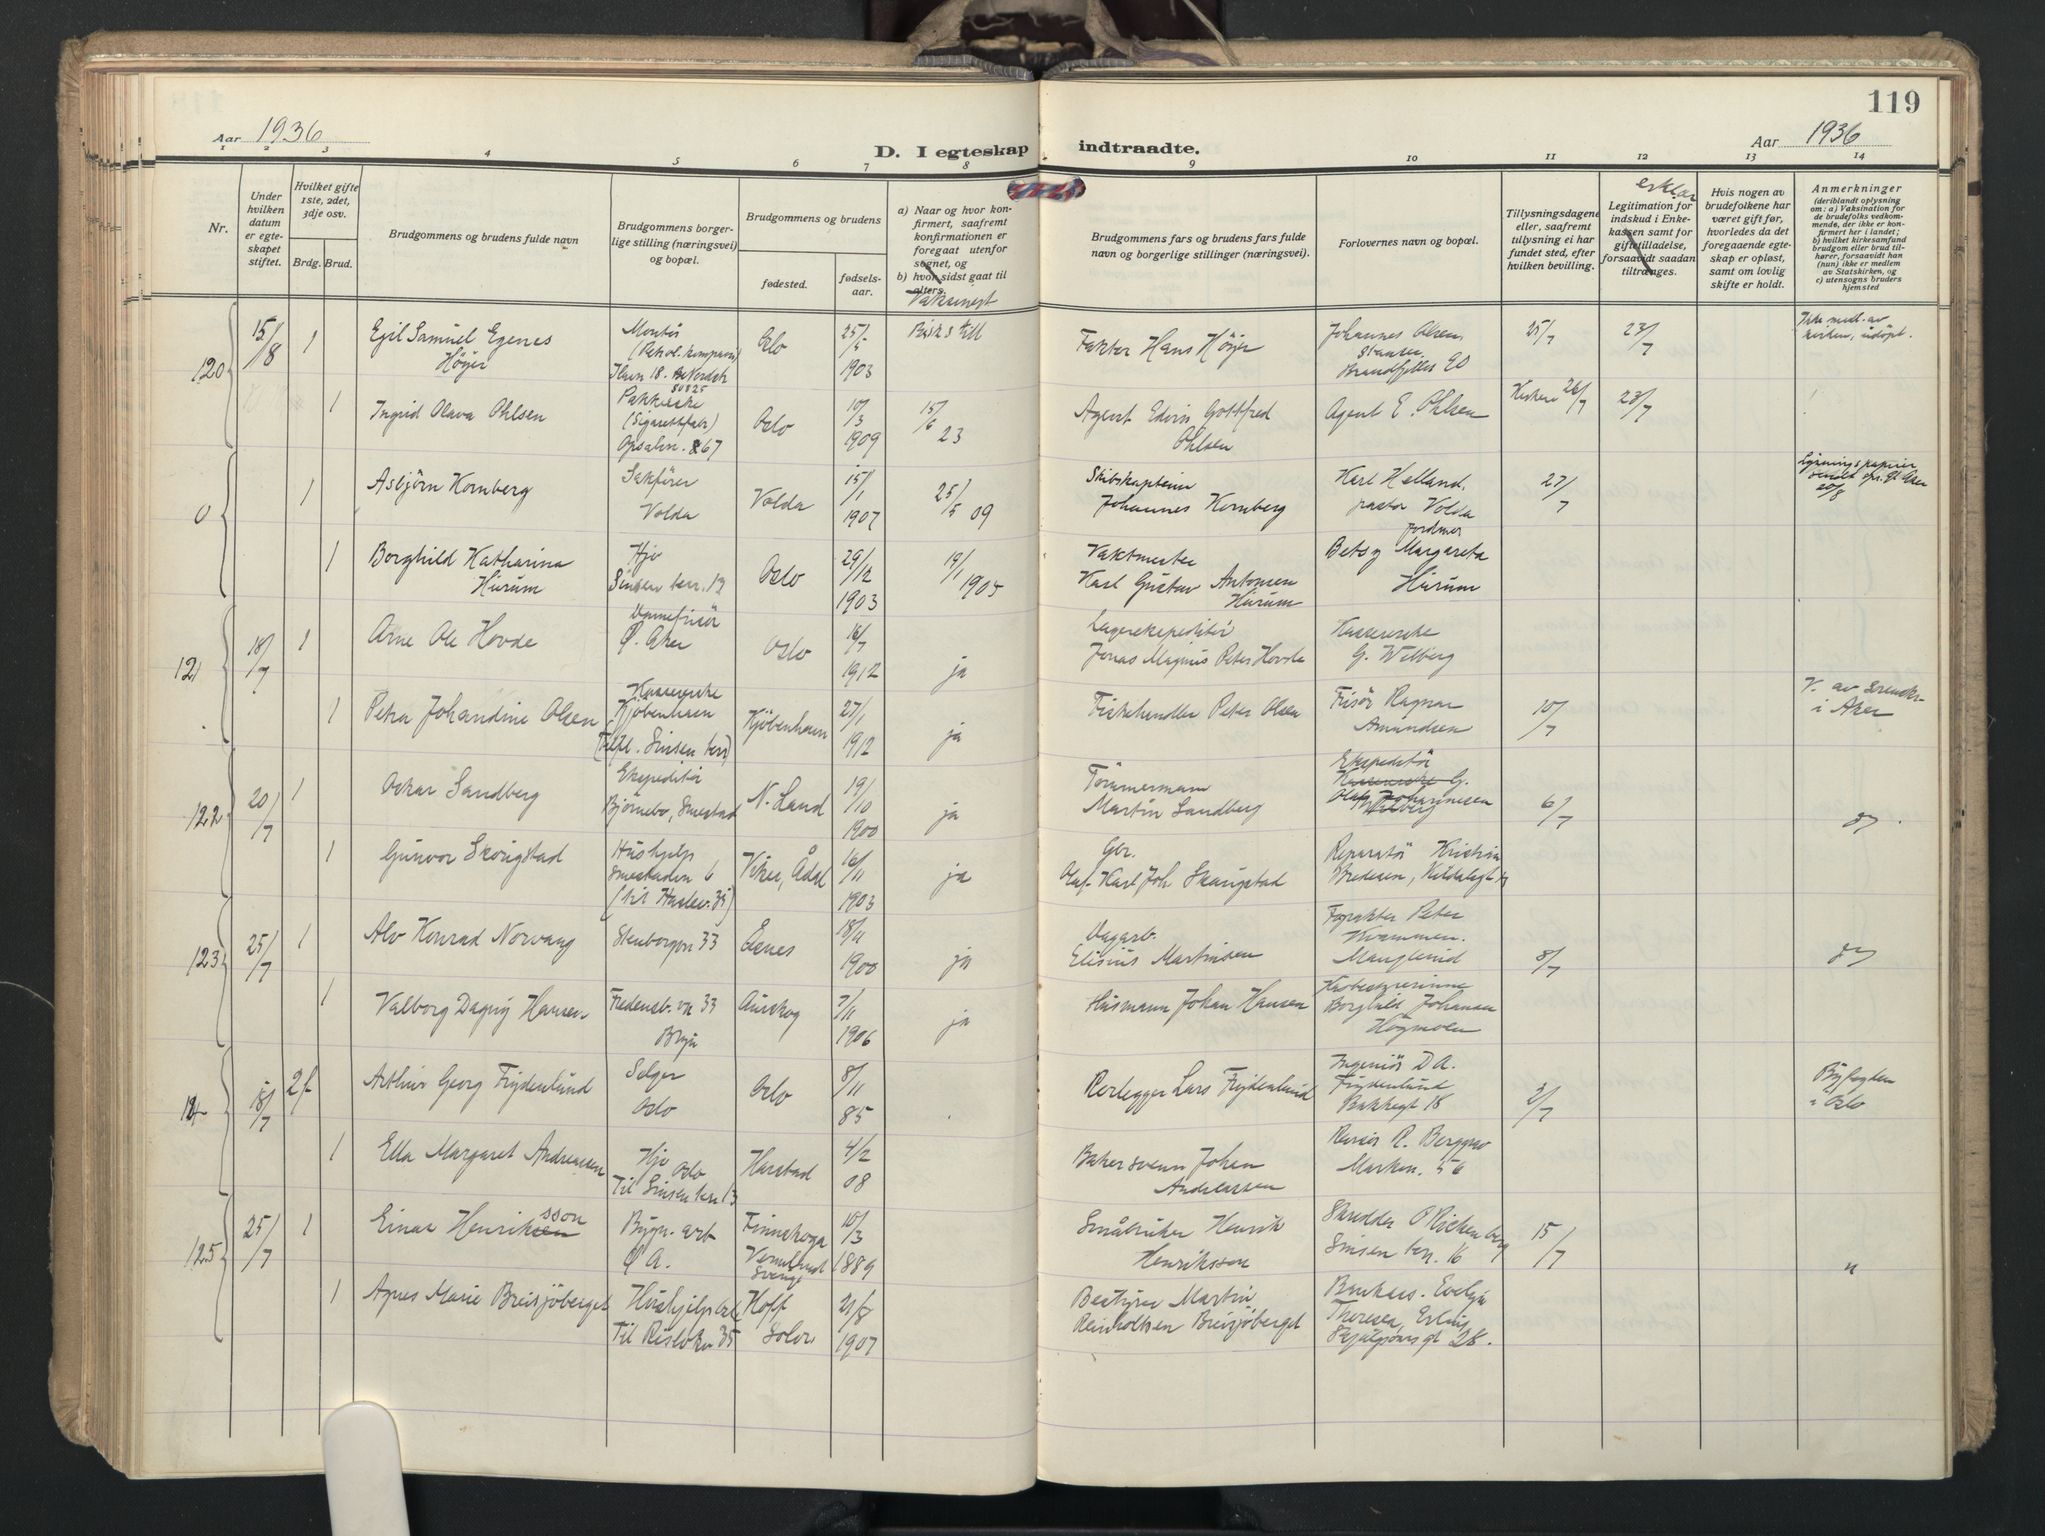 119
Aar 1936
D. I egteskap indtraadte.
Aar 1936
1 2 3 4 5 6 7 8 9 10 11 12 13 14
Nr.
Under hvilken datum er egteskapet stiftet.
Hvilket gifte 1ste, 2det, 3dje osv.
Brdg. Brud.
Brudgommens og brudens fulde navn
Brudgommens borgerlige stilling (næringsvei) og bopæl.
Brudgommens og brudens
fødested.
fødselsaar.
a) Naar og hvor konfirmert, saafremt konfirmationen er foregaat utenfor sognet, og
b) hvor sidst gaat til alters.
Vaksinert
Brudgommens fars og brudens fars fulde navn og borgerlige stillinger (næringsvei).
Forlovernes navn og bopæl.
Tillysningsdagene eller, saafremt tillysning ei har fundet sted, efter hvilken bevilling.
Legitimation for indskud i Enkekassen samt for giftetilladelse, forsaavidt saadan tiltrænges.
Hvis nogen av brudefolkene har været gift før, hvorledes da det foregaaende egteskap er opløst, samt om lovlig skifte er holdt.
Anmerkninger (deriblandt oplysning om: a) Vaksination for de brudefolks vedkommende, der ikke er konfirmert her i landet; b) hvilket kirkesamfund brudgom eller brud tilhører, forsaavidt han (hun) ikke er medlem av Statskirken, og c) utensogns bruders hjemsted
120
15/8 1 Egil Samuel Egenes Høyer
Montør
Oslo 25/5 1903
Faktor Hans Høyer
Johannes Olsen
25/7 23/7
Ikke medl. av kirken, udöpt.
1 Ingrid Olava Ohlsen
Oslo 10/3 1909 15/6 23
Agent Edvin Gottfred Ohlsen
Agent E. Ohlsen
26/7 23/7
0
1 Asbjörn Kornberg
Sakfører Volda
Volda 15/1 1907 25/5 09
Skibskaptein Johannes Kornberg
Karl Helland. pastor Volda
27/7
20/8
1 Borghild Katharina Hurum
Hjv Sinsen terr. 13
Oslo 29/12 1903 19/1 1905
Vaktmester Karl Gustav Antonsen Hurum
Jordmor Betsy Margareta Hurum
121
18/7 1 Arne Ole Hovde
Damefrisör Ø. Aker
Oslo 16/7 1912 ja
Lagerekspeditör Jonas Magnus Peter Hovde
Kassererske G. Wilberg
1 Petra Johandine Olsen
Kassererske Kjöbenhavn
Kjöbenhavn 27/1 1912 ja
Fiskehandler Peter Olsen
Frisör Ragnar Amundsen
10/7
V. av Sorenskr. i Aker
122
20/7 1 Oskar Sandberg
Ekspeditör Bjørnebo, Smestad
N. Land 19/10 1900 ja
Tömmermann Martin Sandberg
Ekspeditör Olaf Johannesen
6/7
1 Gunvor Skougstad
Hushjelp Smestadon 6
Viker, Ådal 16/11 1903 ja
Gbr. Olaf Karl Joh Skaugstad
Reparatör Kristian Bredesen
123
25/7 1 Alv Konrad Norvang
Stenborggt 33
Eenes 18/11 1900 ja
Dagarb. Elisius Martinsen
Peter Kvammen. Manglerud
8/7
1 Valborg Dagny Hansen
Fredensb. vn 33 Bryn
Aurskog 7/11 1906 ja
Husmann Johan Hansen
Husbestyrerinne Borghild Johansen Högmoen
124
18/7 2 Arthur Georg Frydenlund
Selger Oslo
Oslo 8/11 85
Rørlegger Lars Frydenlund
Ingeniör D A. Frydenlund Bakkegt 18
2/7
Byfogden i Oslo
1 Ella Margaret Andreassen
Hjv Oslo Til Sinsen terr 13
Harstad 4/2 08
Bakersvenn Johan Andreassen
Revisor R. Berggrav Marken. 56
125
25/7 1 Einar Henriksson
Bygn. arb Ø A.
Finnskoga Vermland Sverige 10/3 1889
Småbruker Henrik Henriksson
Skredder Sinsen terr. 16
15/7
"
1 Agnes Marie Breisjöberget
Hushjelp Til Risløkv. 35
Hoff Solør 21/8 1907
Bestyrer Martin Reinholtsen Breisjöberget
Evelyn Theresea Skjalgsons gt 28.